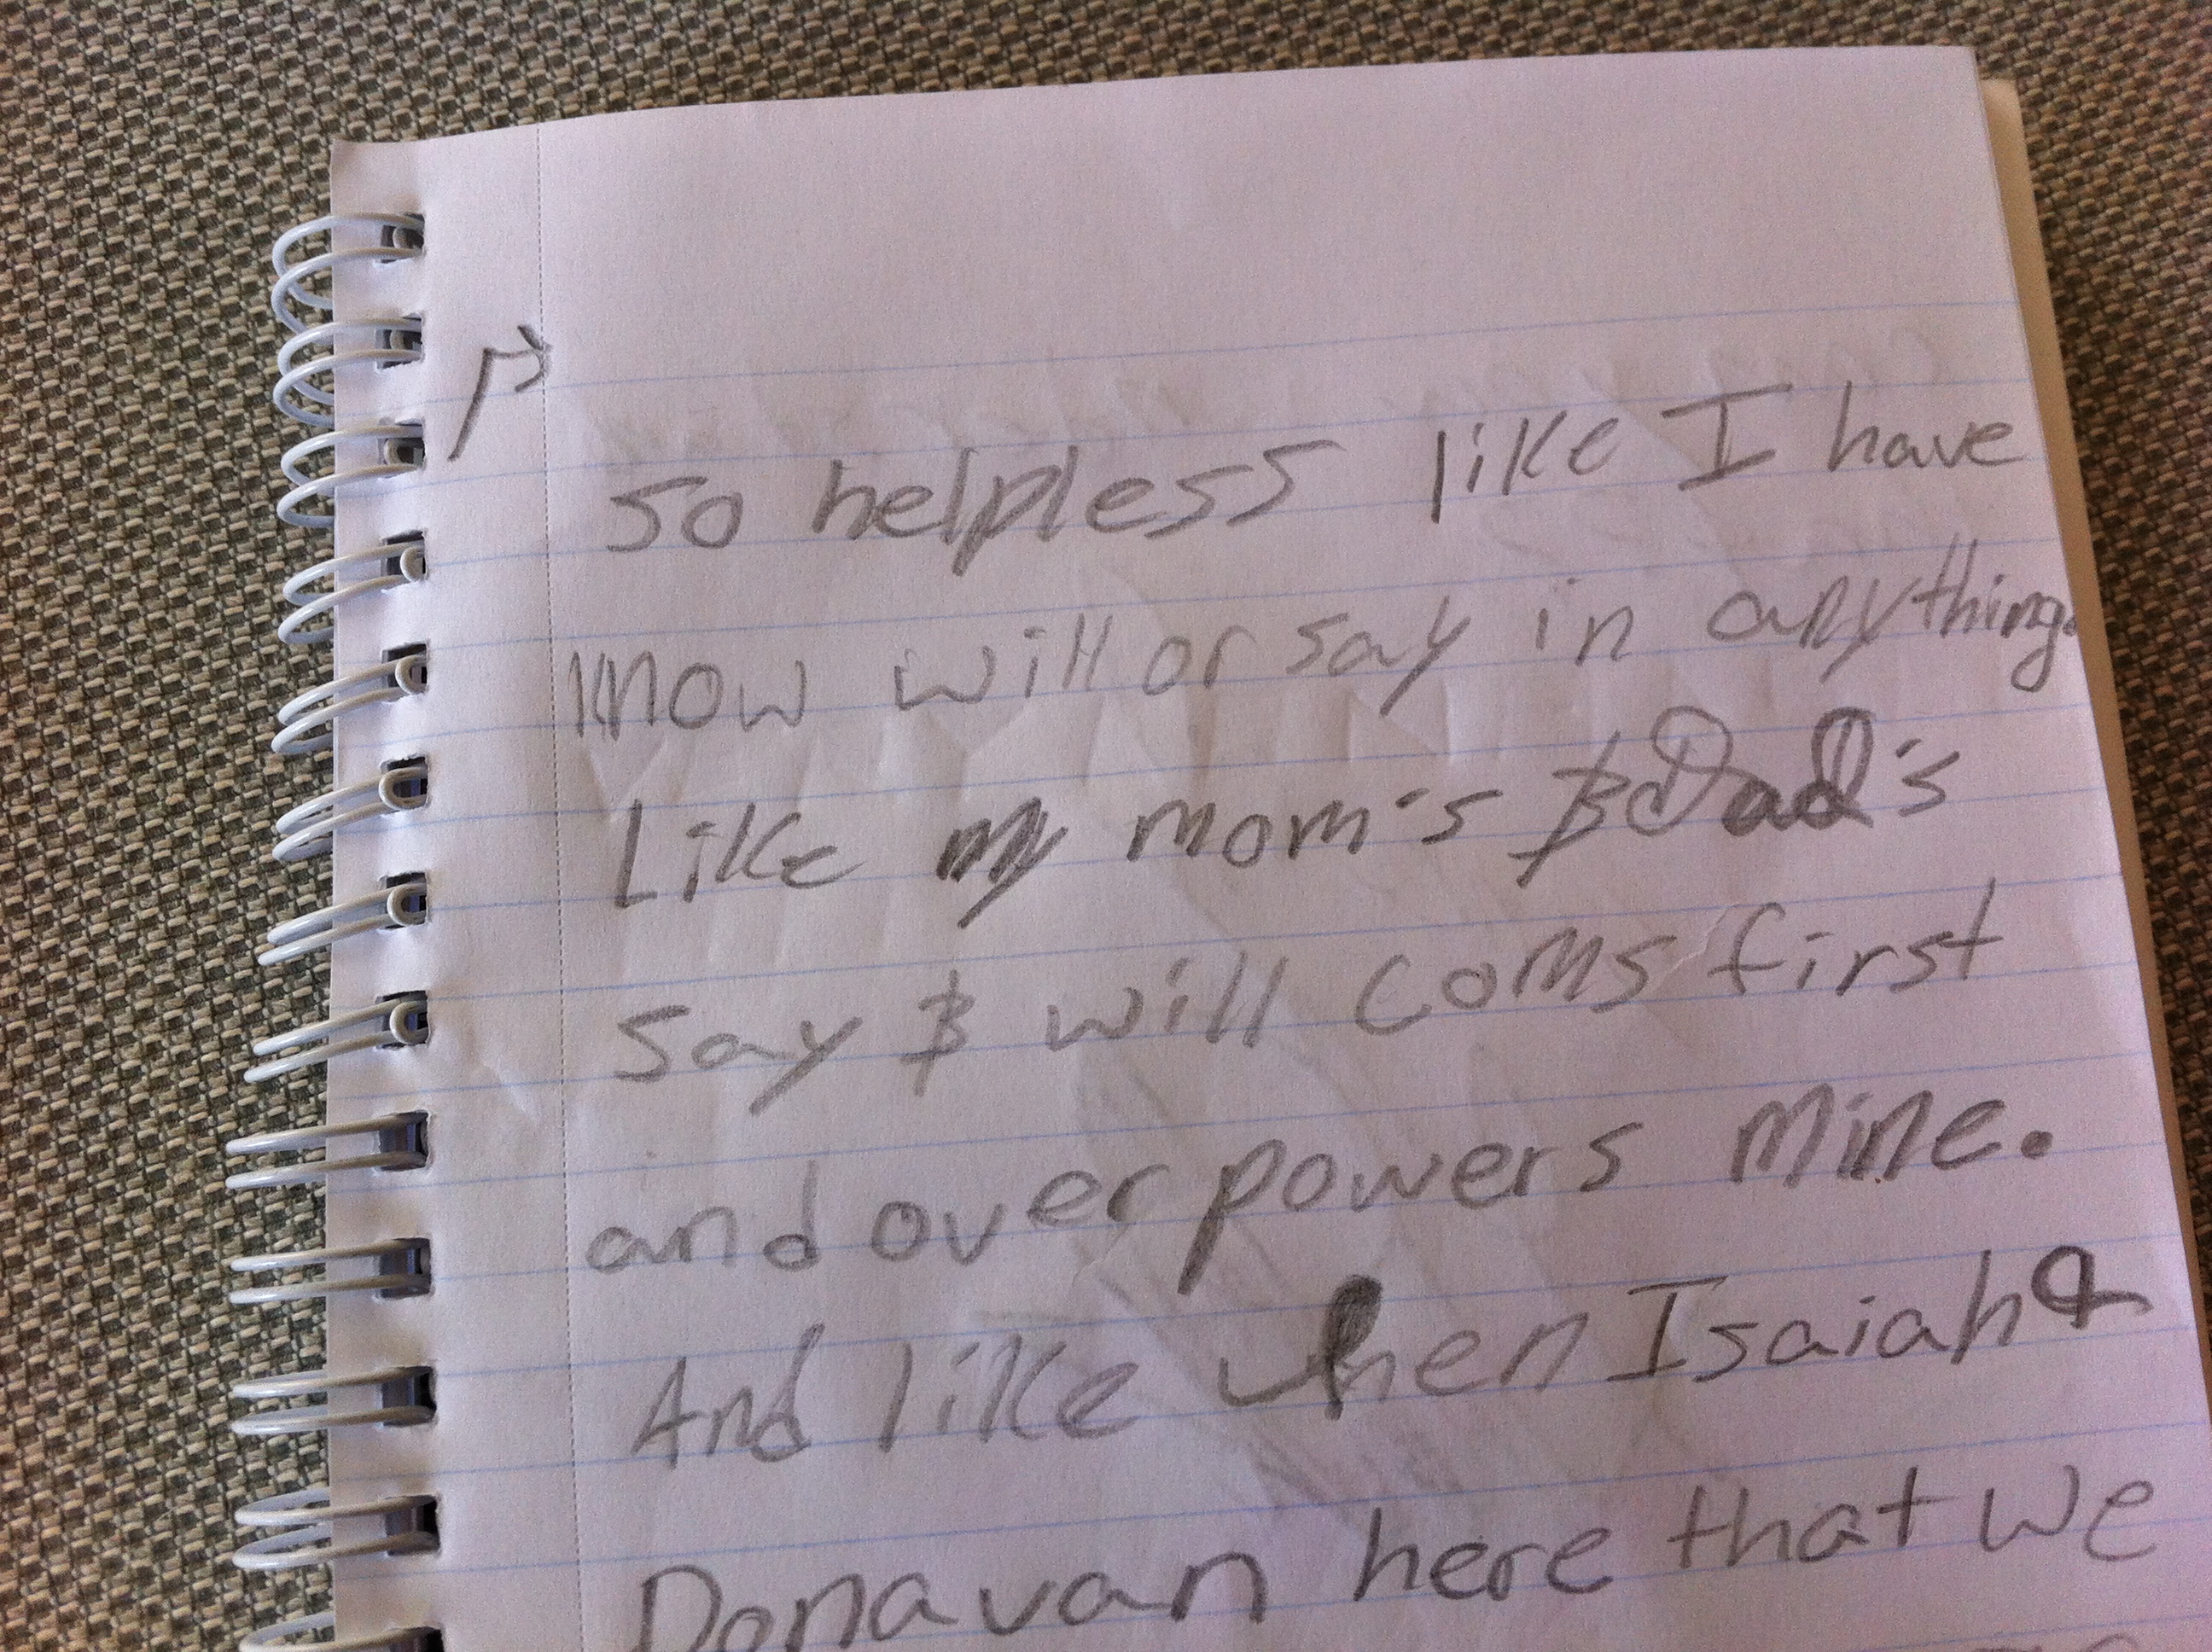 so helpless like I have
know will or say in anything.
Like my mom's & Dad's
say & will coms first
and over powers mine.
And like when Isaiah &
Donavan here that we